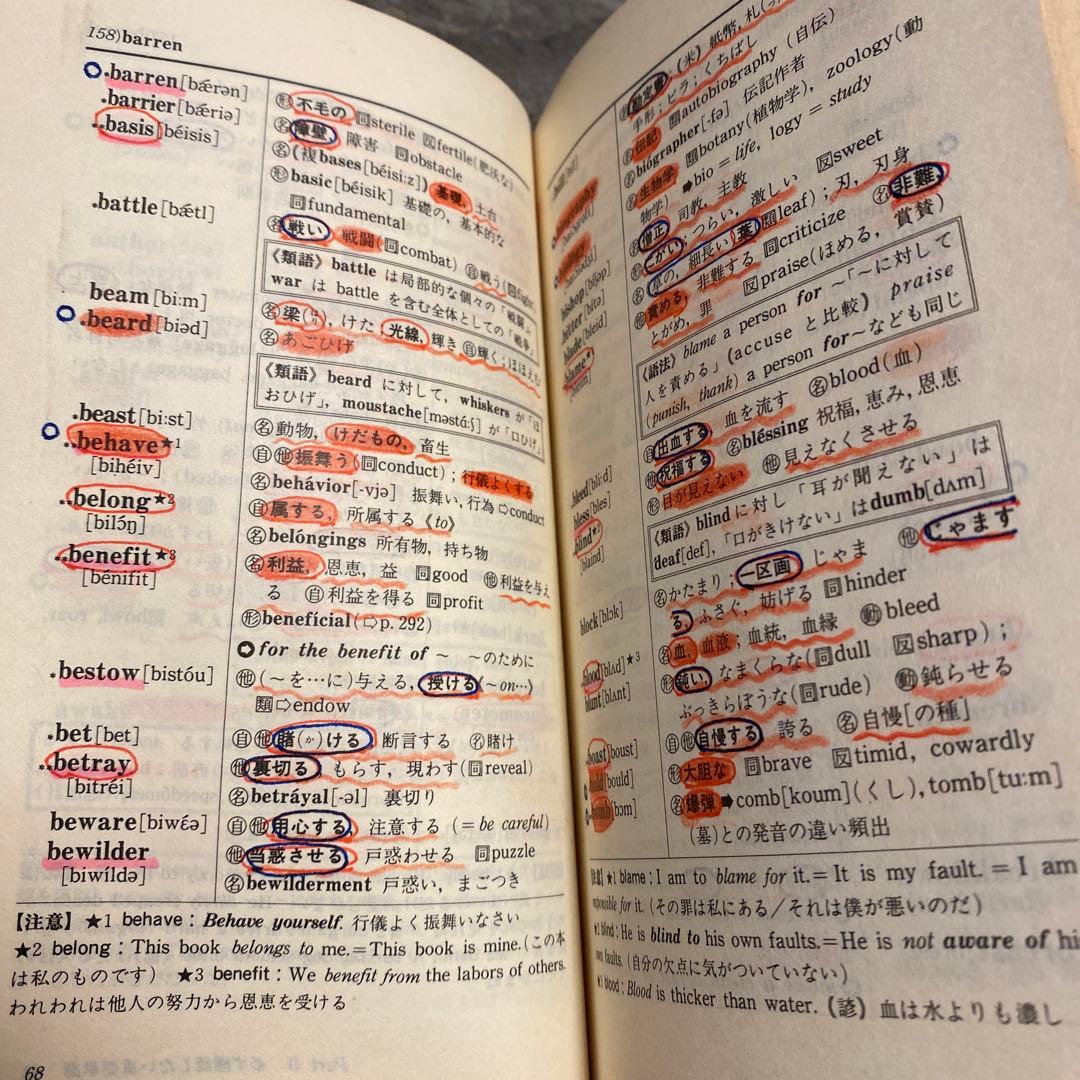 158)barren
barren[bǽrən]
形不毛の 同sterile 反fertile(肥沃な)
barrier[bǽriə]
名障壁, 障害 同obstacle
basis[béisis]
名(複bases[béisi:z])基礎, 土台
形basic[béisik] 基礎の, 基本的な
同fundamental
battle[bǽtl]
名戦い, 戦闘(同combat) 自戦う(同fight)
《類語》battle は局部的な個々の「戦闘」,
war は battle を含む全体としての「戦争」
beam[bi:m]
名梁(はり), けた; 光線, 輝き 自輝く; ほほえむ
beard[biəd]
名あごひげ
《類語》beard に対して, whiskers が「ほ
おひげ」, moustache[məstɑ́:ʃ] が「口ひげ」
beast[bi:st]
名動物, けだもの, 畜生
behave★1
[bihéiv]
自他振舞う(同conduct); 行儀よくする
名behávior[-vjə] 振舞い, 行為 ⇨conduct
belong★2
[bilɔ́ŋ]
自属する, 所属する《to》
名belóngings 所有物, 持ち物
benefit★3
[bénifit]
名利益, 恩恵, 益 同good 他利益を与え
る 自利益を得る 同profit
形benefícial(⇨p. 292)
for the benefit of ～ ～のために
bestow[bistóu]
他(～を…に)与える, 授ける(～on…)
類⇨endow
bet[bet]
自他賭(か)ける 断言する 名賭け
betray
[bitréi]
他裏切る もらす, 現わす(同reveal)
名betráyal[-əl] 裏切り
beware[biwɛ́ə]
自他用心する, 注意する (=be careful)
bewilder
[biwíldə]
他当惑させる 戸惑わせる 同puzzle
名bewilderment 戸惑い, まごつき
【注意】★1 behave: Behave yourself. 行儀よく振舞いなさい
★2 belong: This book belongs to me.=This book is mine.(この本
は私のものです) ★3 benefit: We benefit from the labors of others.
われわれは他人の努力から恩恵を受ける
68
勘定書, (米)紙幣, 札
手形; ビラ; くちばし
名伝記 類autobiography (自伝)
名biógrapher[-fə] 伝記作者
名生物学 類botany(植物学), zoology(動
物学) ➡bio = life, logy = study
bishop[bíʃəp]
名僧正 司教, 主教
bitter[bítə]
形にがい; つらい, 激しい 反sweet
blade[bleid]
名草の, 細長い(葉)(類leaf); 刃, 刃身
blame★1
[bleim]
他責める, 非難する 同criticize 名非難
とがめ, 罪 反praise(ほめる, 賞賛)
《語法》blame a person for ～「～に対して
人を責める」(accuse と比較) praise
(punish, thank) a person for～なども同じ
bleed[bli:d]
自出血する 血を流す 名blood(血)
bless[bles]
他祝福する 名bléssing 祝福, 恵み, 恩恵
blind★2
[blaind]
形目が見えない 他見えなくさせる
《類語》blindに対し「耳が聞えない」は
deaf[def], 「口がきけない」はdumb[dʌm]
block[blɔk]
名かたまり; 一区画 じゃま 他じゃます
る, ふさぐ, 妨げる 同hinder
blood[blʌd]★3
名血, 血液; 血統, 血縁 動bleed
blunt[blʌnt]
形鈍い, なまくらな(同dull 反sharp);
ぶっきらぼうな(同rude) 動鈍らせる
boast[boust]
自他自慢する 誇る 名自慢[の種]
bold[bould]
形大胆な 同brave 反timid, cowardly
bomb[bɔm]
名爆弾 ➡comb[koum](くし), tomb[tu:m]
(墓)との発音の違い頻出
【注意】★1 blame: I am to blame for it.=It is my fault.=I am
responsible for it. (その罪は私にある/それは僕が悪いのだ)
★1 blind: He is blind to his own faults.=He is not aware of his
own faults.(自分の欠点に気がついていない)
★1 blood: Blood is thicker than water. (諺) 血は水よりも濃し